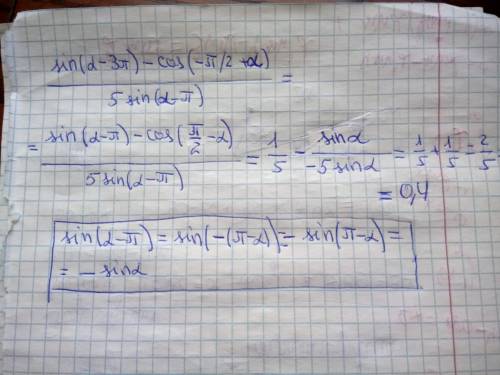 (sin(α-3π) - cos(-π/2+α)) / (5 sin(α-π)) =
= (sin(α-π) - cos(π/2-α)) / (5 sin(α-π)) = 1/5 - sinα/(-5 sinα) = 1/5 + 1/5 = 2/5
= 0,4
sin(α-π) = sin(-(π-α)) = - sin(π-α) =
= - sinα